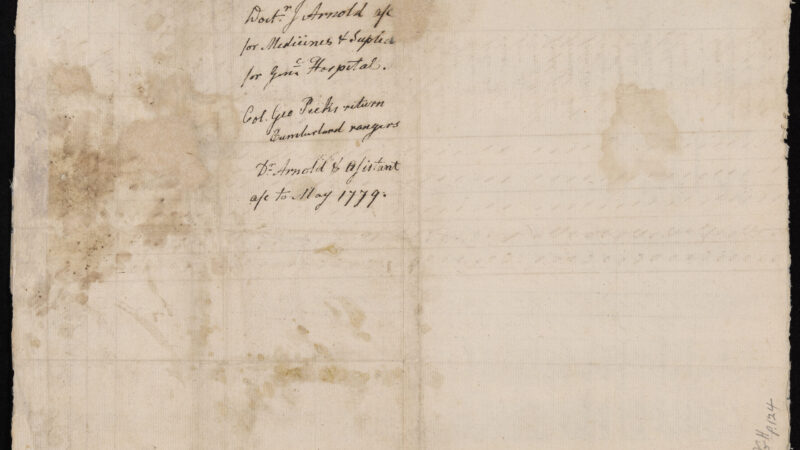 Doctr. J Arnold a/c
for Medicines & Suplis
for Genc. Hospital.
Col. Geo Pecks return
Cumberland rangers
Dr. Arnold & Assistant
a/c to May 1779.
p.124